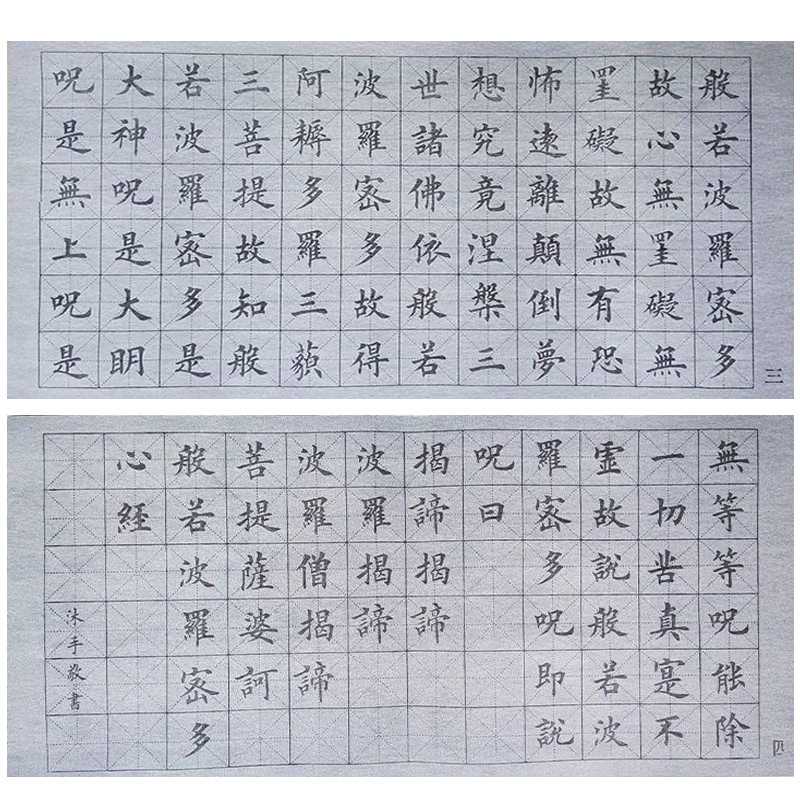 般若波羅密多
故心無罣礙無
罣礙故無有恐
怖遠離顛倒夢
想究竟涅槃三
世諸佛依般若
波羅密多故得
阿耨多羅三藐
三菩提故知般
若波羅密多是
大神呪是大明
呪是無上呪是
三
無等等呪能除
一切苦真寔不
虛故說般若波
羅密多呪即說
呪曰
揭諦揭諦
波羅揭諦
波羅僧揭諦
菩提薩婆訶
般若波羅密多
心経
沐手敬書
四